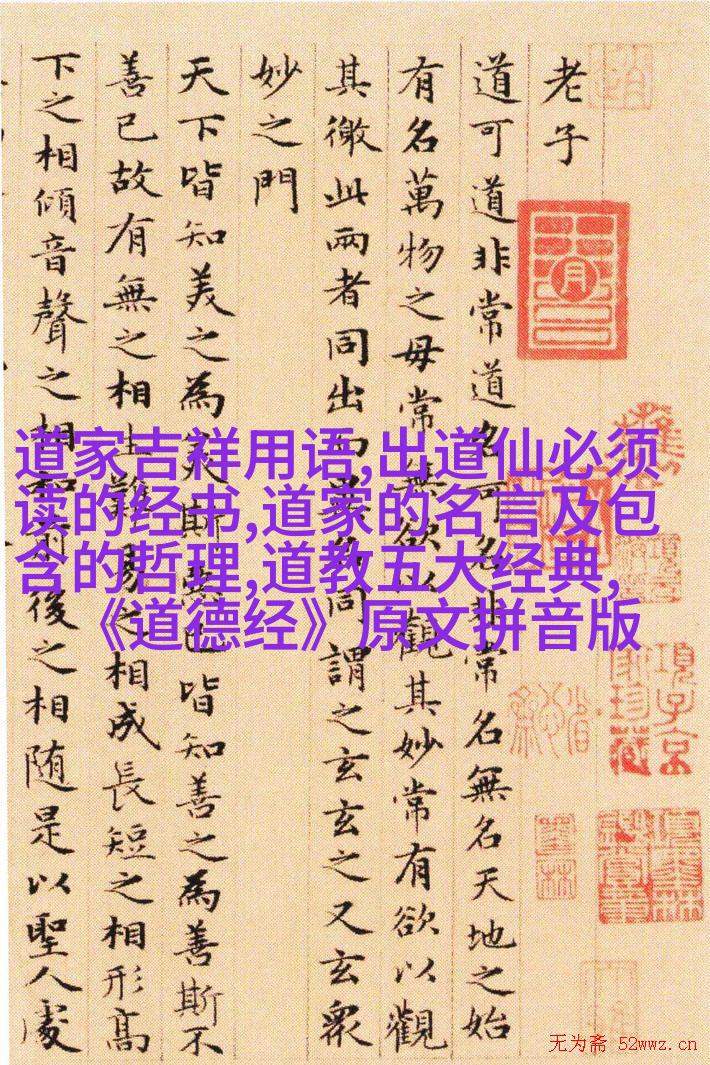 老子
道可道非常道名可名非常名無名天地之始
有名萬物之母常無欲以觀其妙常有欲以觀
其徼此兩者同出而異名同謂之玄玄之又玄衆
妙之門
天下皆知美之為美斯惡已皆知善之為善斯不
善已故有無之相生難易之相成長短之相形高
下之相傾音聲之相和前後之相随是以聖人處
道家吉祥用语,出道仙必须
读的经书,道家的名言及包
含的哲理,道教五大经典,
《道德经》原文拼音版
項子京
家珍藏
无为斋 52wwz.cn